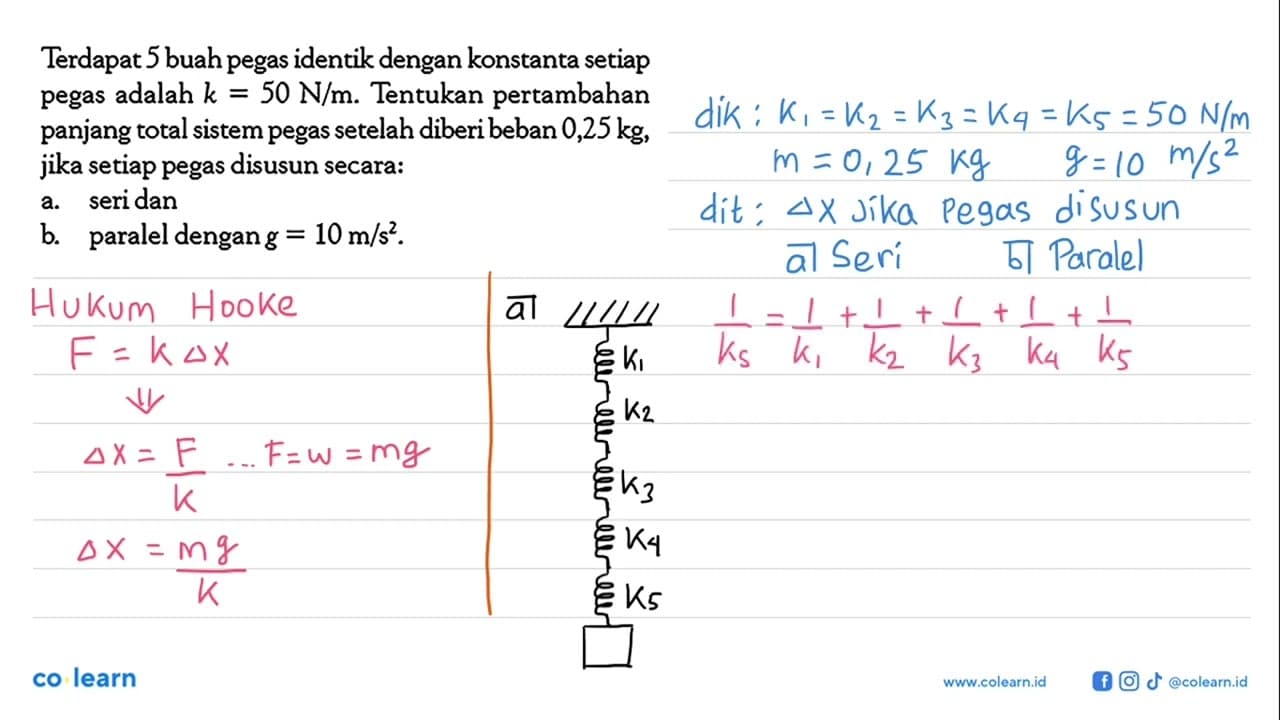 Terdapat 5 buah pegas identik dengan konstanta setiap
pegas adalah k = 50 N/m. Tentukan pertambahan
panjang total sistem pegas setelah diberi beban 0,25 kg,
jika setiap pegas disusun secara:
a. seri dan
b. paralel dengan g = 10 m/s².
dik : K₁ = K₂ = K₃ = K₄ = K₅ = 50 N/m
m = 0,25 kg g = 10 m/s²
dit : Δx jika pegas disusun
a) Seri b) Paralel
Hukum Hooke
F = K Δx
⇓
Δx = F/K ... F = w = mg
Δx = mg/K
a)
K₁
K₂
K₃
K₄
K₅
1/ks = 1/k₁ + 1/k₂ + 1/k₃ + 1/k₄ + 1/k₅
co learn
www.colearn.id
@colearn.id